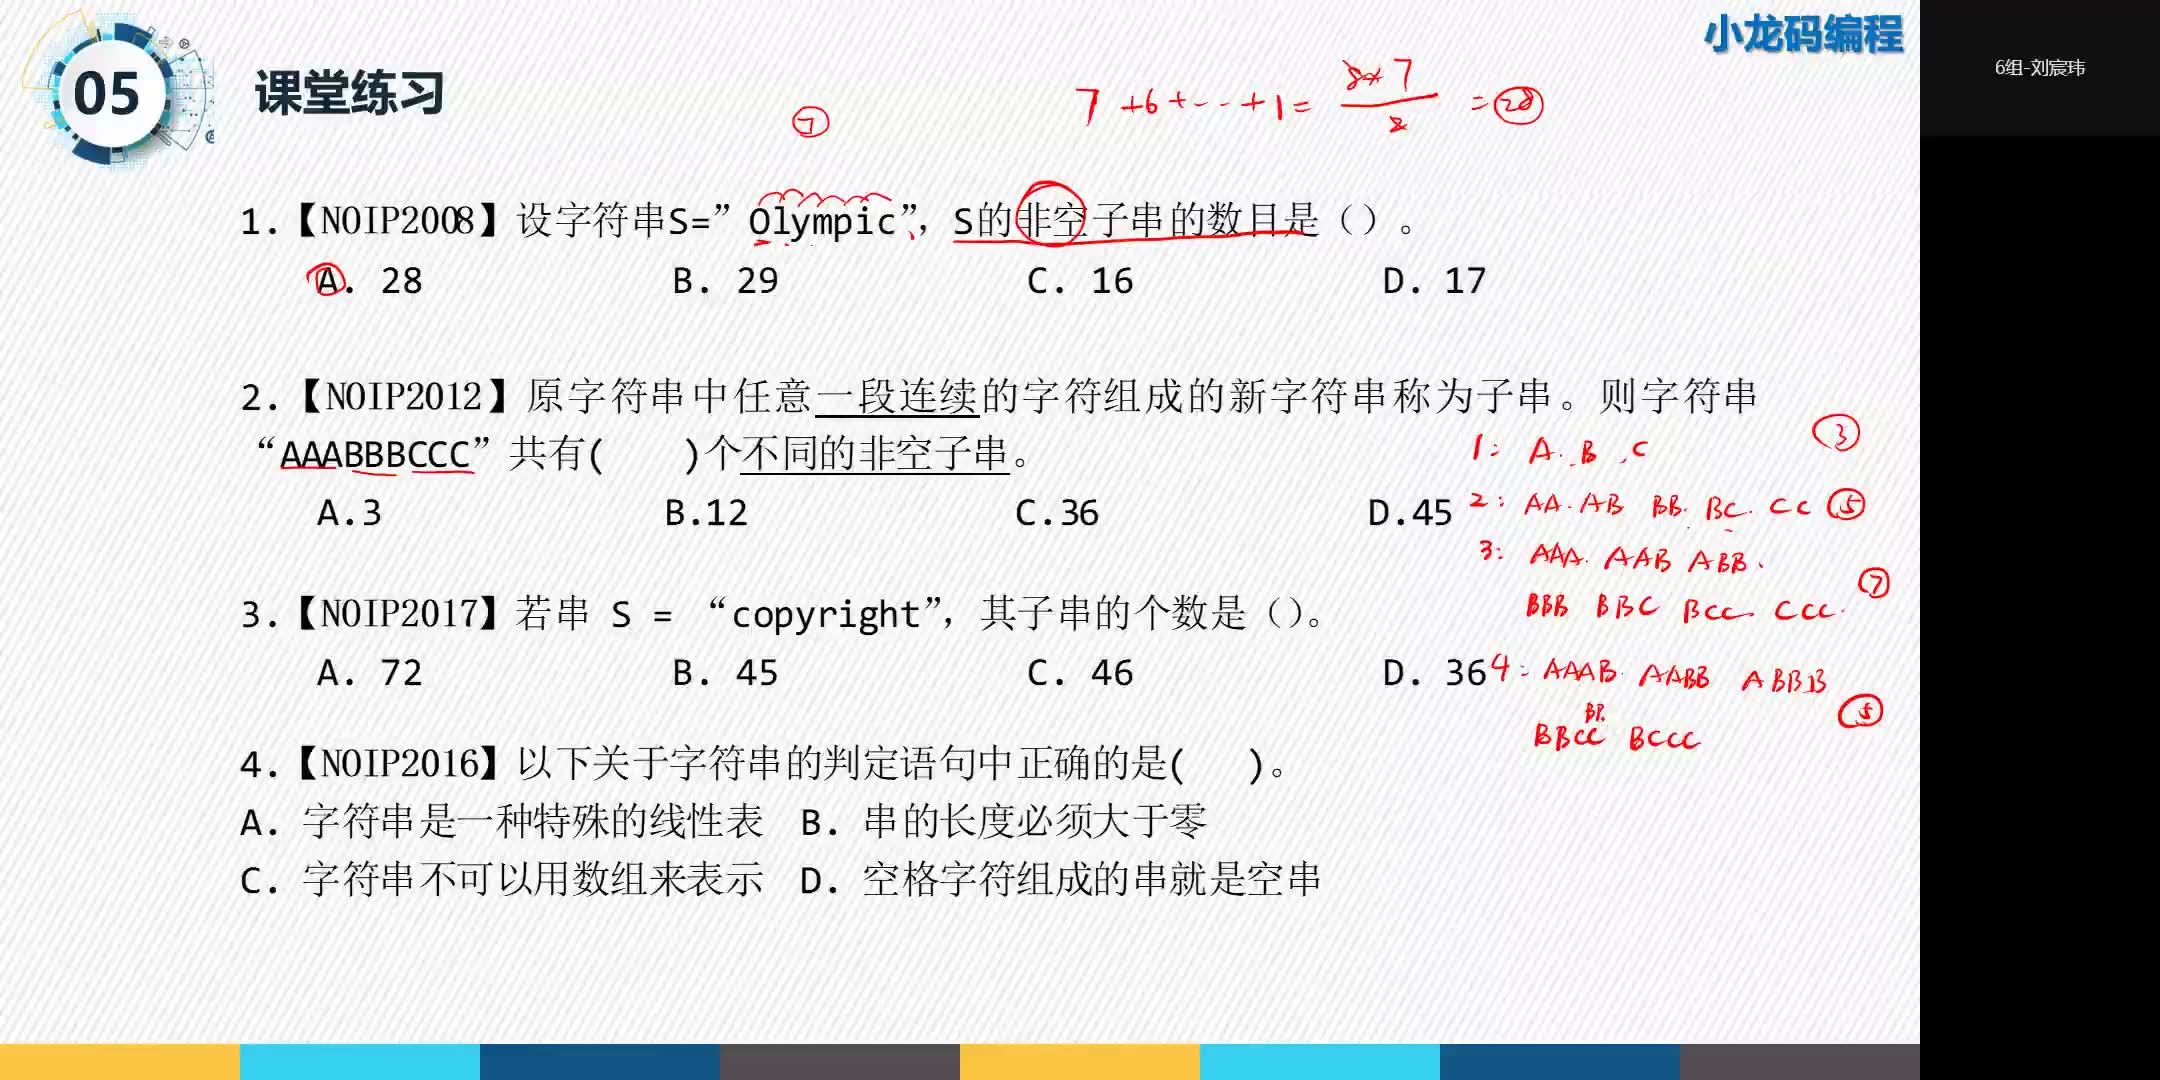 小龙码编程
6组-刘宸玮
05 课堂练习
7+6+--+1= 8×7/2 =28
7
1.【NOIP2008】设字符串S=”Olympic”，S的非空子串的数目是（）。
A. 28 B. 29 C. 16 D. 17
2.【NOIP2012】原字符串中任意一段连续的字符组成的新字符串称为子串。则字符串
“AAABBBCCC”共有( )个不同的非空子串。
1: A. B. C 3
A.3 B.12 C.36 D.45
2: AA. AB BB. BC. CC 5
3: AAA. AAB ABB.
BBB BBC BCC CCC. 7
3.【NOIP2017】若串 S = “copyright”，其子串的个数是（）。
A. 72 B. 45 C. 46 D. 36
4: AAAB. AABB ABBB
BBCC BCCC 5
4.【NOIP2016】以下关于字符串的判定语句中正确的是( )。
A. 字符串是一种特殊的线性表 B. 串的长度必须大于零
C. 字符串不可以用数组来表示 D. 空格字符组成的串就是空串